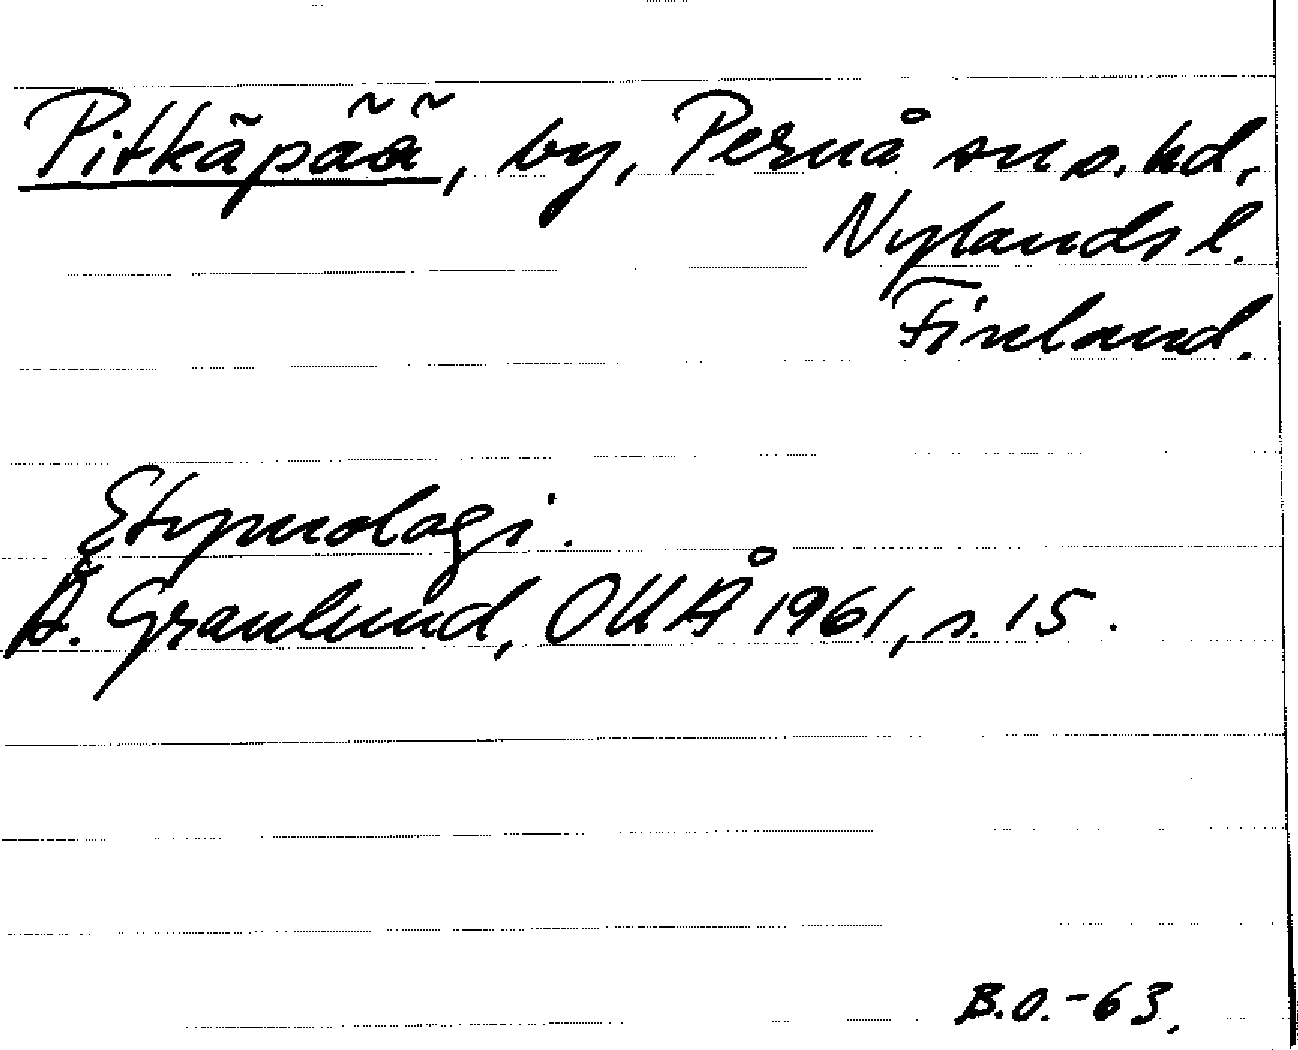 Pitkäpää, by, Pernå sn o. hd,
Nylands l.
Finland.
Etymologi.
Å. Granlund, OUÅ 1961, s. 15.
B.O.-63.